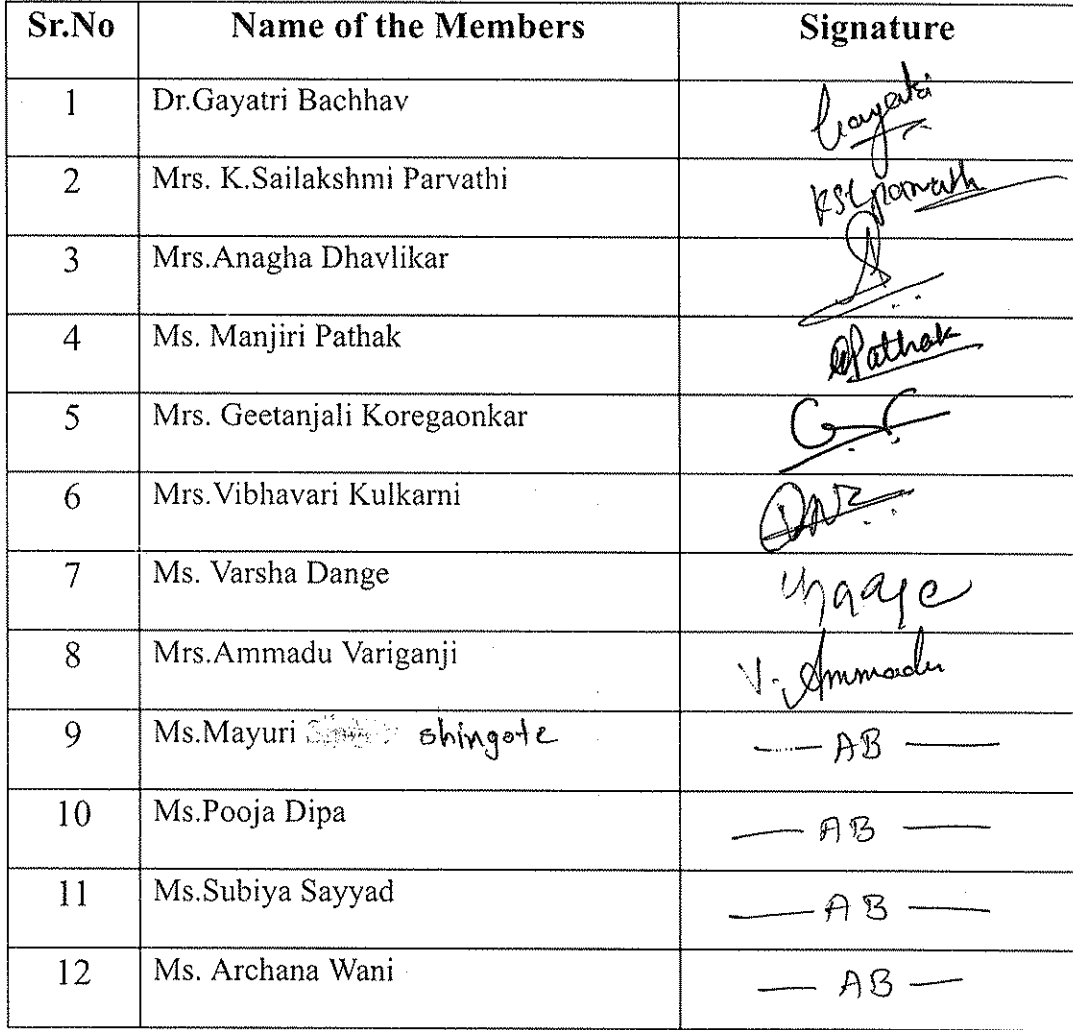 Sr.No Name of the Members Signature
1 Dr.Gayatri Bachhav Gayatri
2 Mrs. K.Sailakshmi Parvathi KSLParvath
3 Mrs.Anagha Dhavlikar
4 Ms. Manjiri Pathak Pathak
5 Mrs. Geetanjali Koregaonkar
6 Mrs.Vibhavari Kulkarni
7 Ms. Varsha Dange
8 Mrs.Ammadu Variganji V. Ammadu
9 Ms.Mayuri shingote — AB —
10 Ms.Pooja Dipa — AB —
11 Ms.Subiya Sayyad — AB —
12 Ms. Archana Wani — AB —